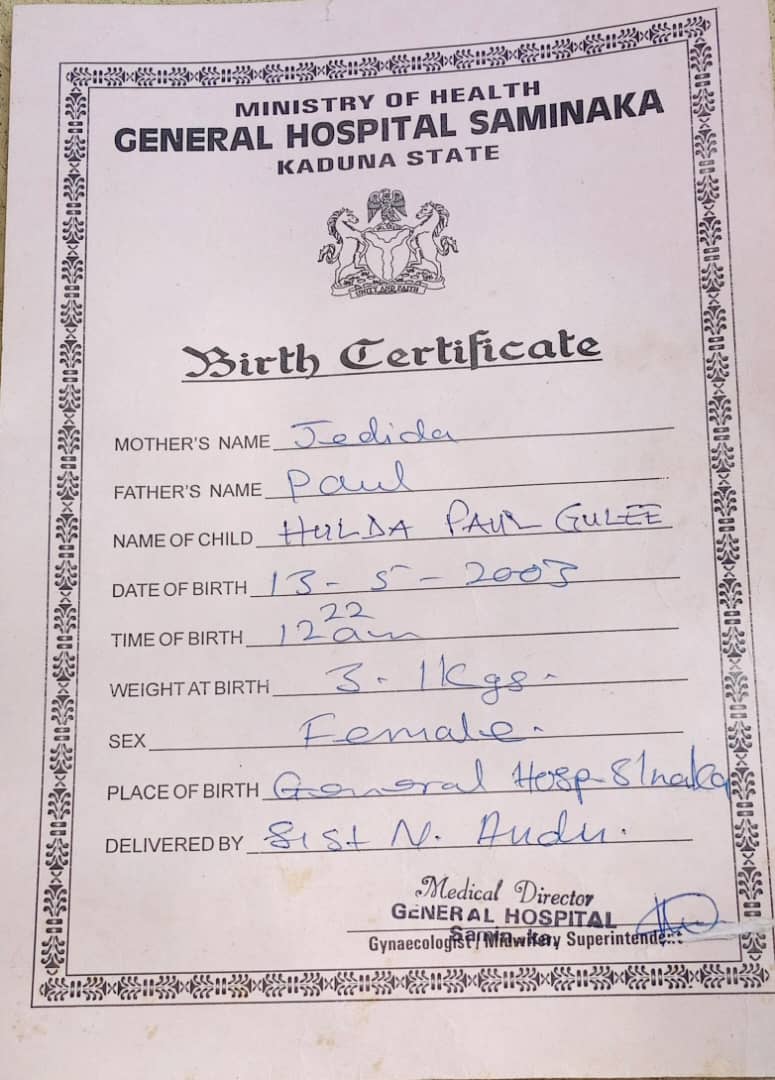 MINISTRY OF HEALTH
GENERAL HOSPITAL SAMINAKA
KADUNA STATE
UNITY AND FAITH
Birth Certificate
MOTHER'S NAME Jedida
FATHER'S NAME Paul
NAME OF CHILD HULDA PAUL GULEE
DATE OF BIRTH 13 - 5 - 2003
TIME OF BIRTH 12 22 am
WEIGHT AT BIRTH 3.1Kgs.
SEX Female.
PLACE OF BIRTH General Hosp S/naka
DELIVERED BY Sist N. Audu.
Medical Director
GENERAL HOSPITAL
Saminaka
Gynaecologist / Midwifery Superintendent